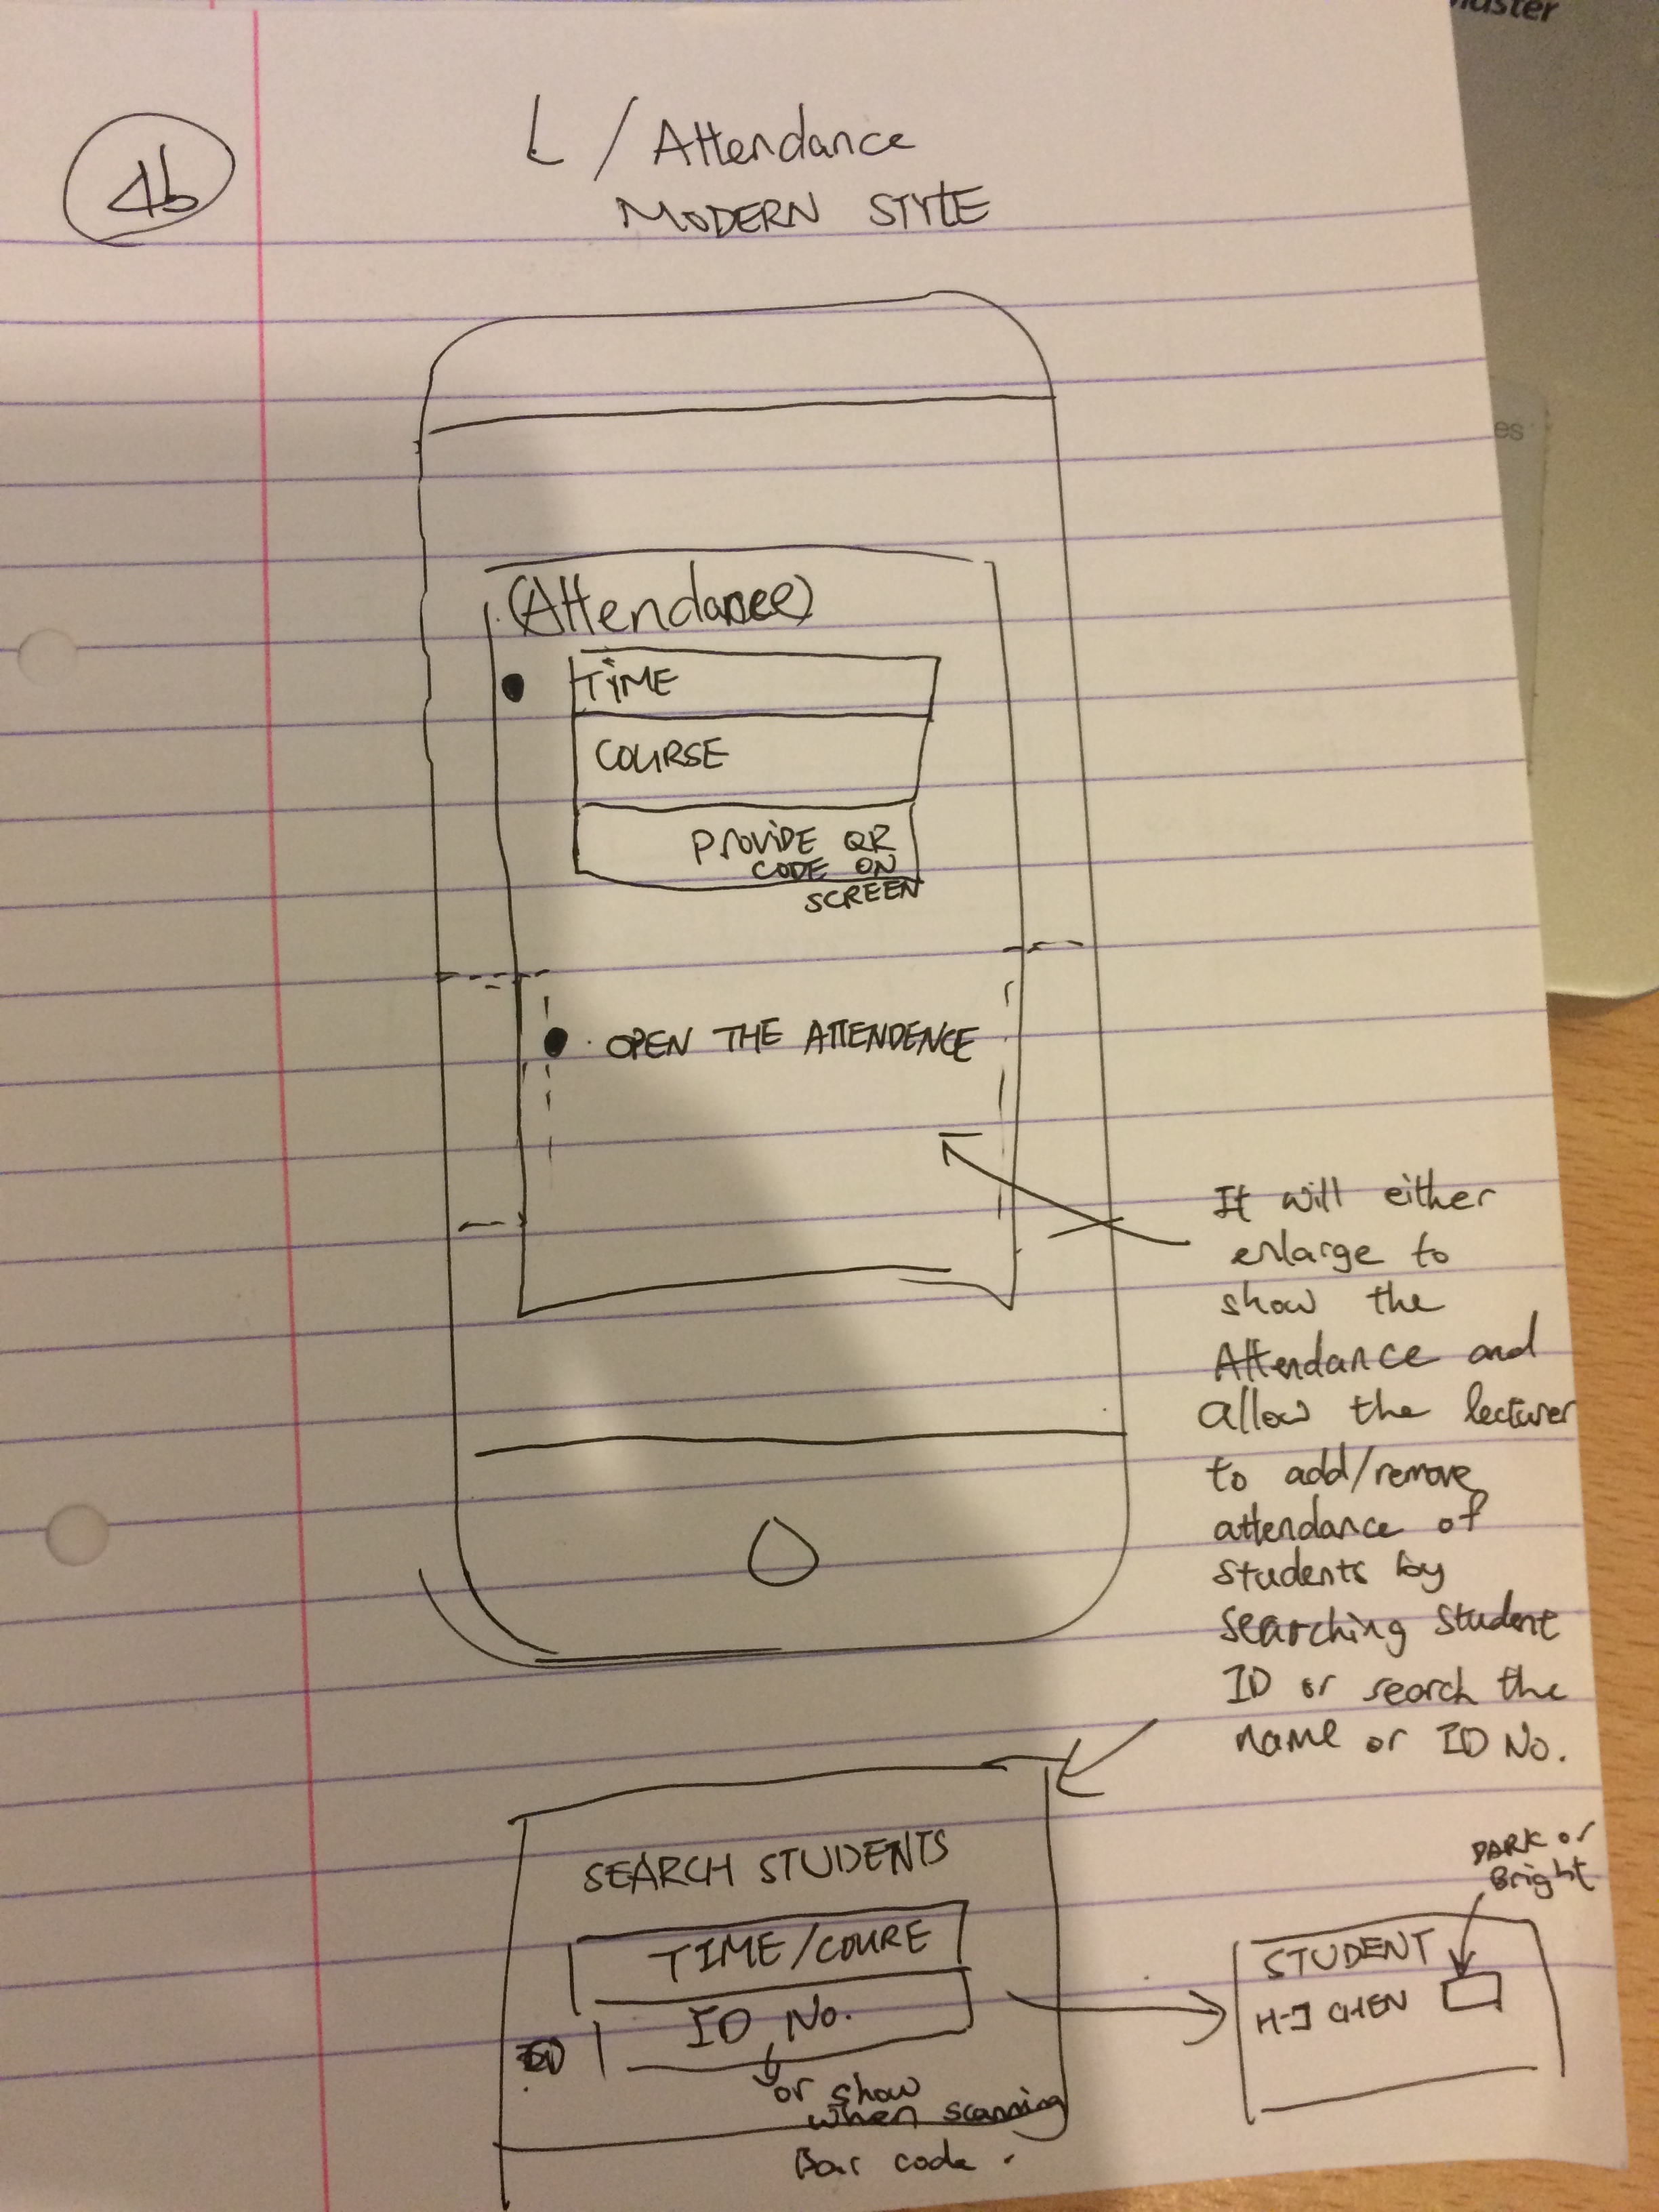 4b
L / Attendance
MODERN STYLE
(Attendance)
TIME
COURSE
PROVIDE QR
CODE ON
SCREEN
OPEN THE ATTENDENCE
It will either
enlarge to
show the
Attendance and
allow the lecturer
to add/remove
attendance of
students by
searching student
ID or search the
name or ID No.
SEARCH STUDENTS
TIME/COURE
ID No.
or show
when scanning
Bar code.
DARK or
Bright
STUDENT
H-J CHEN
es